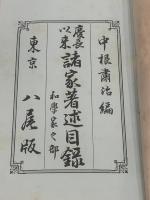 中根肅治編
慶長以来
諸家著述目録
和学家之部
東京 八尾版